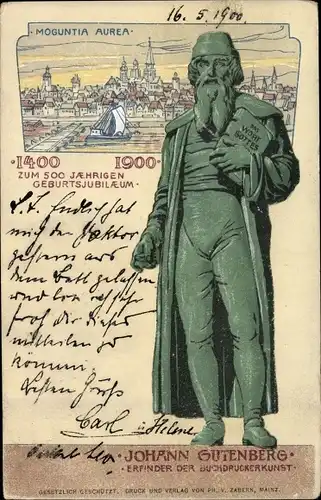 16.5.1900
MOGUNTIA AUREA
DAS
WORT
GOTTES
1400 1900
ZUM 500 JÆHRIGEN
GEBURTSJUBILÆUM
Endlich hat
mich der Doktor
gestern aus
dem Bett gelassen
und bin ich sehr
froh dir dieses
mitteilen zu
können.
Besten Gruß
Carl u. Helene
JOHANN GUTENBERG
ERFINDER DER BUCHDRUCKERKUNST
GESETZLICH GESCHÜTZT. DRUCK UND VERLAG VON PH. V. ZABERN, MAINZ.